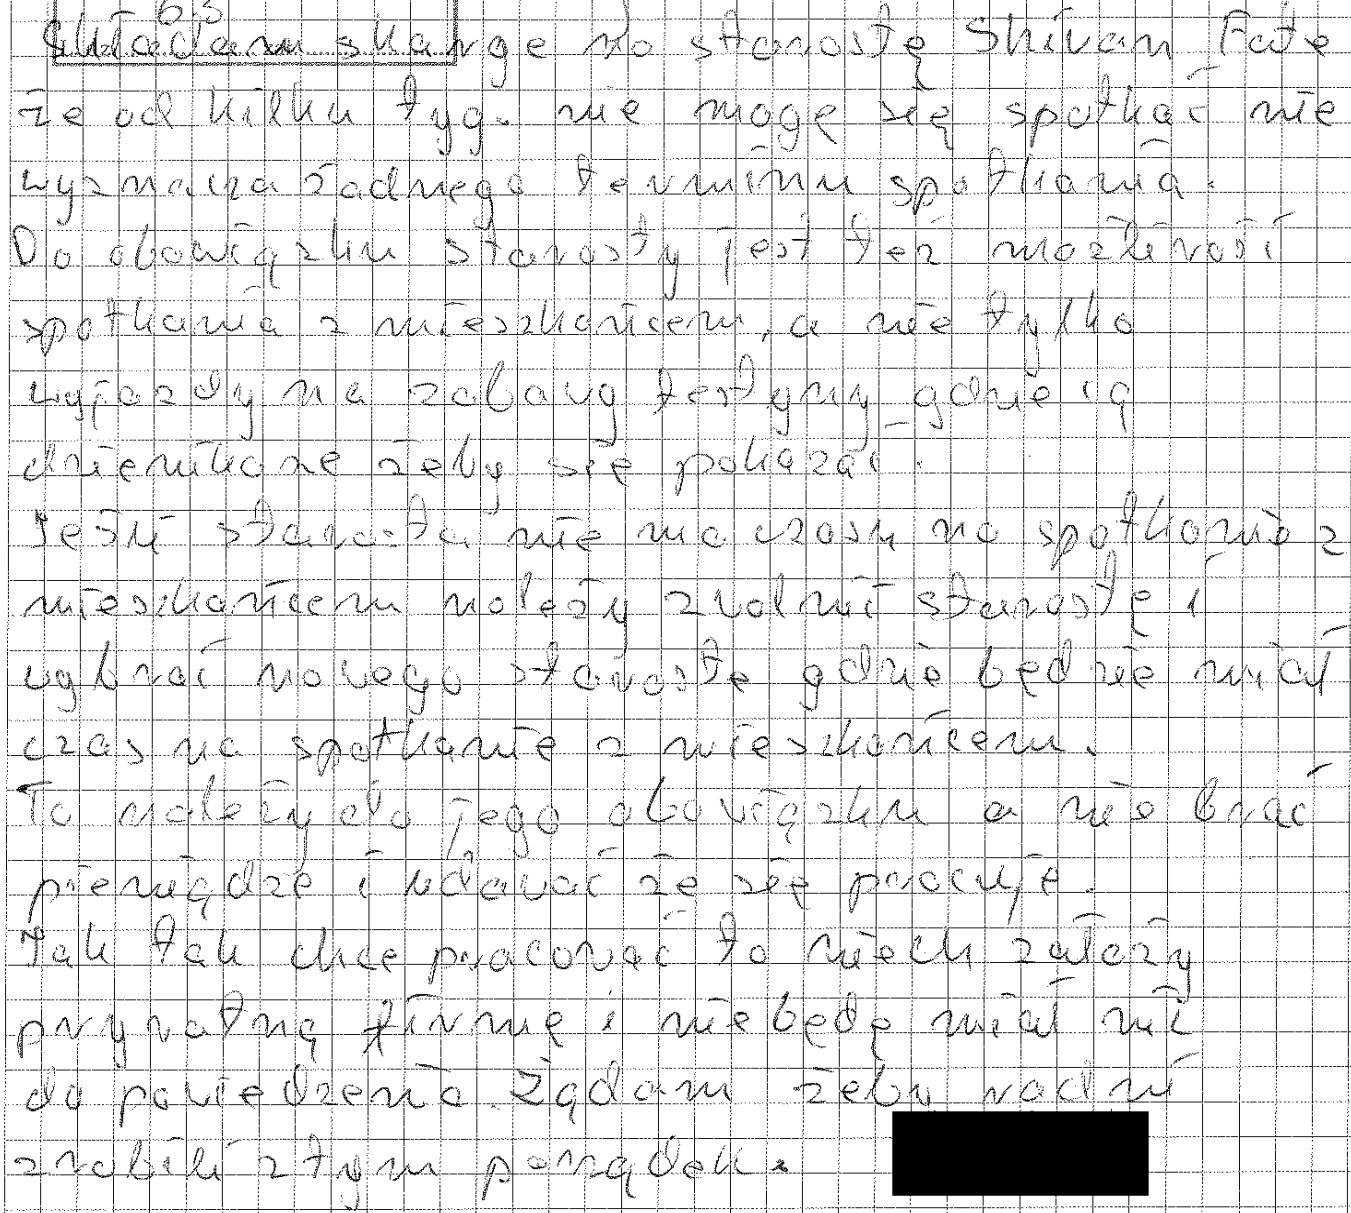 63
Składam skargę na starostę Shivan Fate
że od kilku tyg. nie mogę się spotkać nie
wyznacza żadnego terminu spotkania.
Do obowiązku starosty jest też możliwość
spotkania z mieszkańcem, a nie tylko
wyjazdy na zabawy festyny gdzie są
dziennikarze żeby się pokazać.
Jeśli starosta nie ma czasu na spotkanie z
mieszkańcem należy zwolnić starostę i
wybrać nowego starostę gdzie będzie miał
czas na spotkanie z mieszkańcem.
To należy do jego obowiązku a nie brać
pieniądze i udawać że się pracuje.
Jak tak chce pracować to niech założy
prywatną firmę i nie będę miał nic
do powiedzenia. Żądam żeby radni
zrobili z tym porządek.